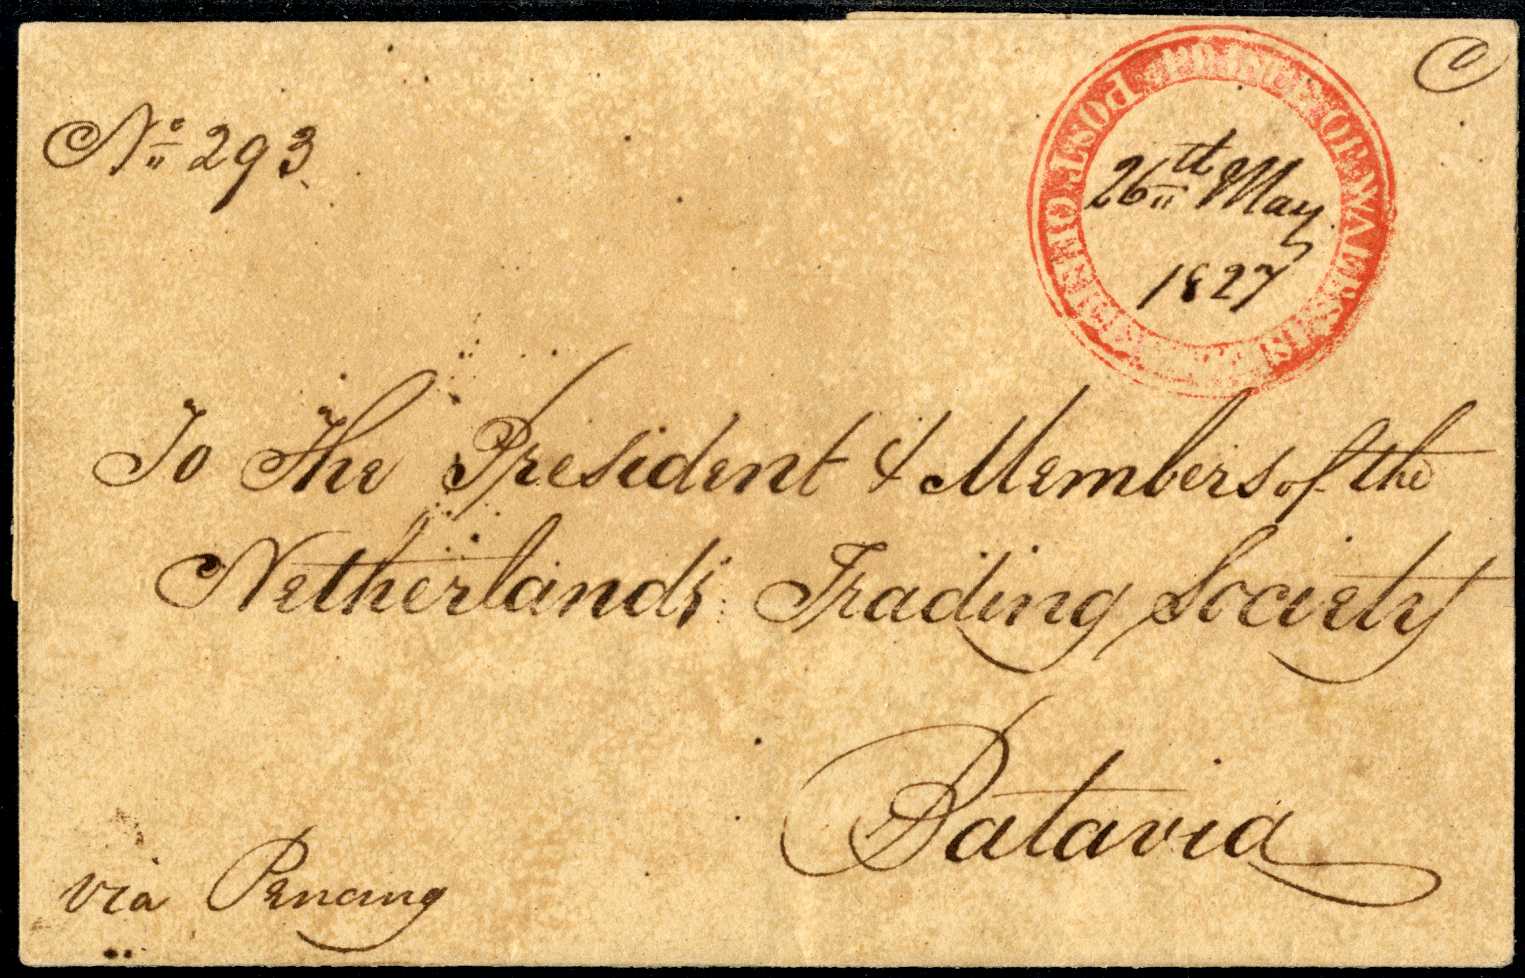 C
No 293
POST OFFICE PRINCE OF WALES IS
26th May
1827
To The President & Members of the
Netherlands Trading Society
Batavia
via Penang